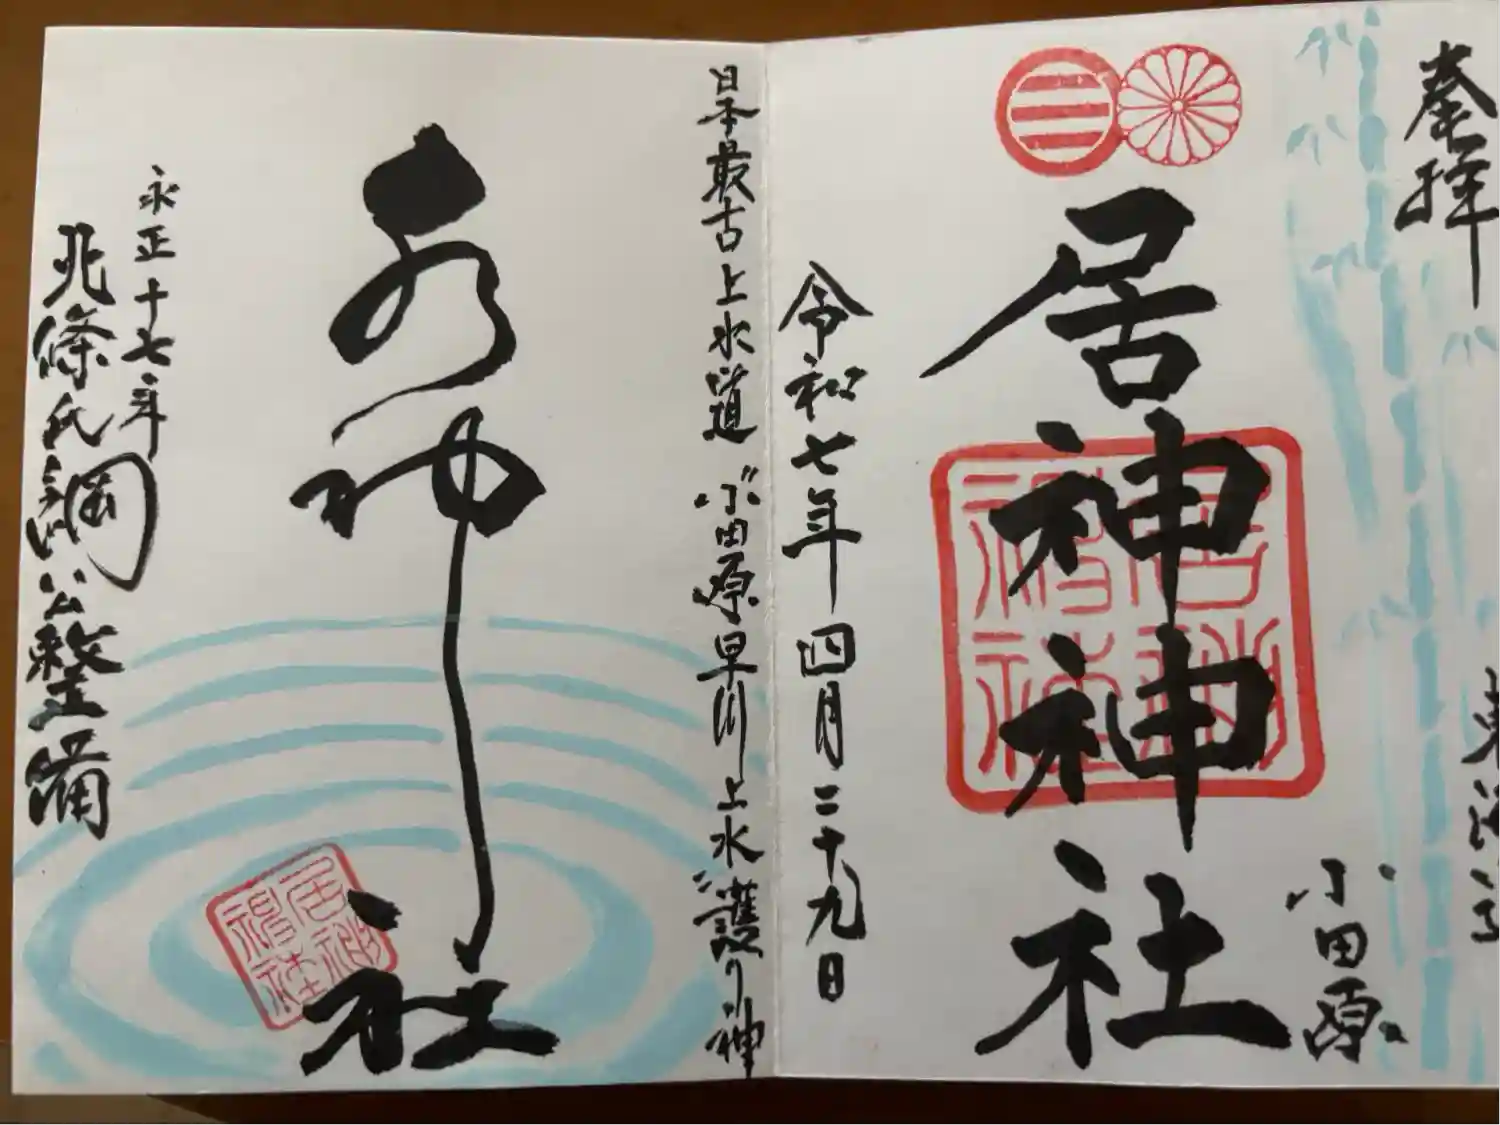 奉拝
東海道
小田原
居神神社
令和七年四月二十九日
日本最古上水道 小田原早川上水護り神
水神社
永正十七年
北條氏綱公整備
居神神社